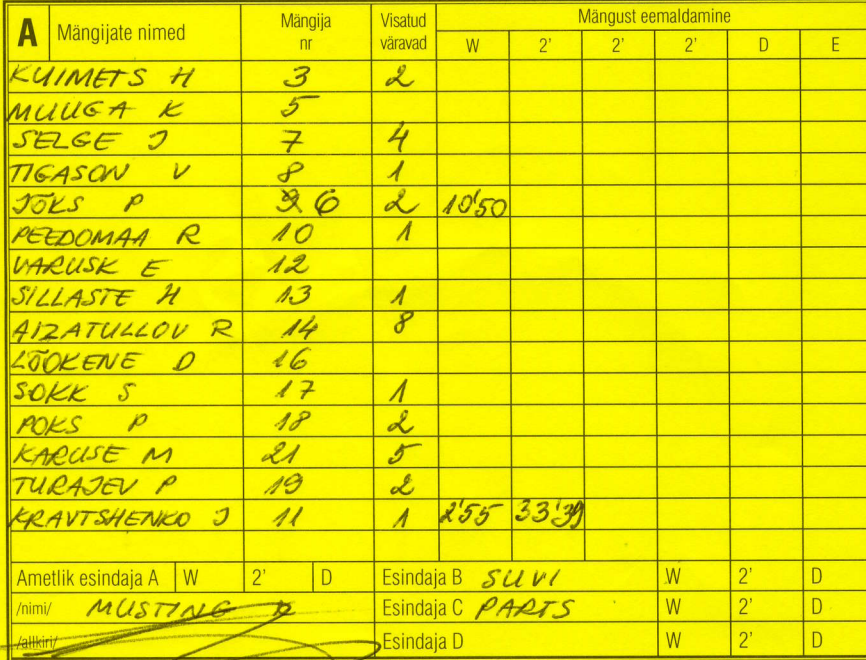 A Mängijate nimed Mängija nr Visatud väravad Mängust eemaldamine
W 2' 2' 2' D E
KUIMETS H 3 2
MUUGA K 5
SELGE J 7 4
TIGASON V 8 1
JÕKS P 6 2 10'50
PEEDOMAA R 10 1
VARUSK E 12
SILLASTE H 13 1
AIZATULLOV R 14 8
LÕOKENE D 16
SOKK S 17 1
POKS P 18 2
KARUSE M 21 5
TURAJEV P 19 2
KRAVTSHENKO J 11 1 2'55 33'39
Ametlik esindaja A W 2' D Esindaja B SUVI W 2' D
/nimi/ MUSTING Esindaja C PARTS W 2' D
/allkiri/ Esindaja D W 2' D